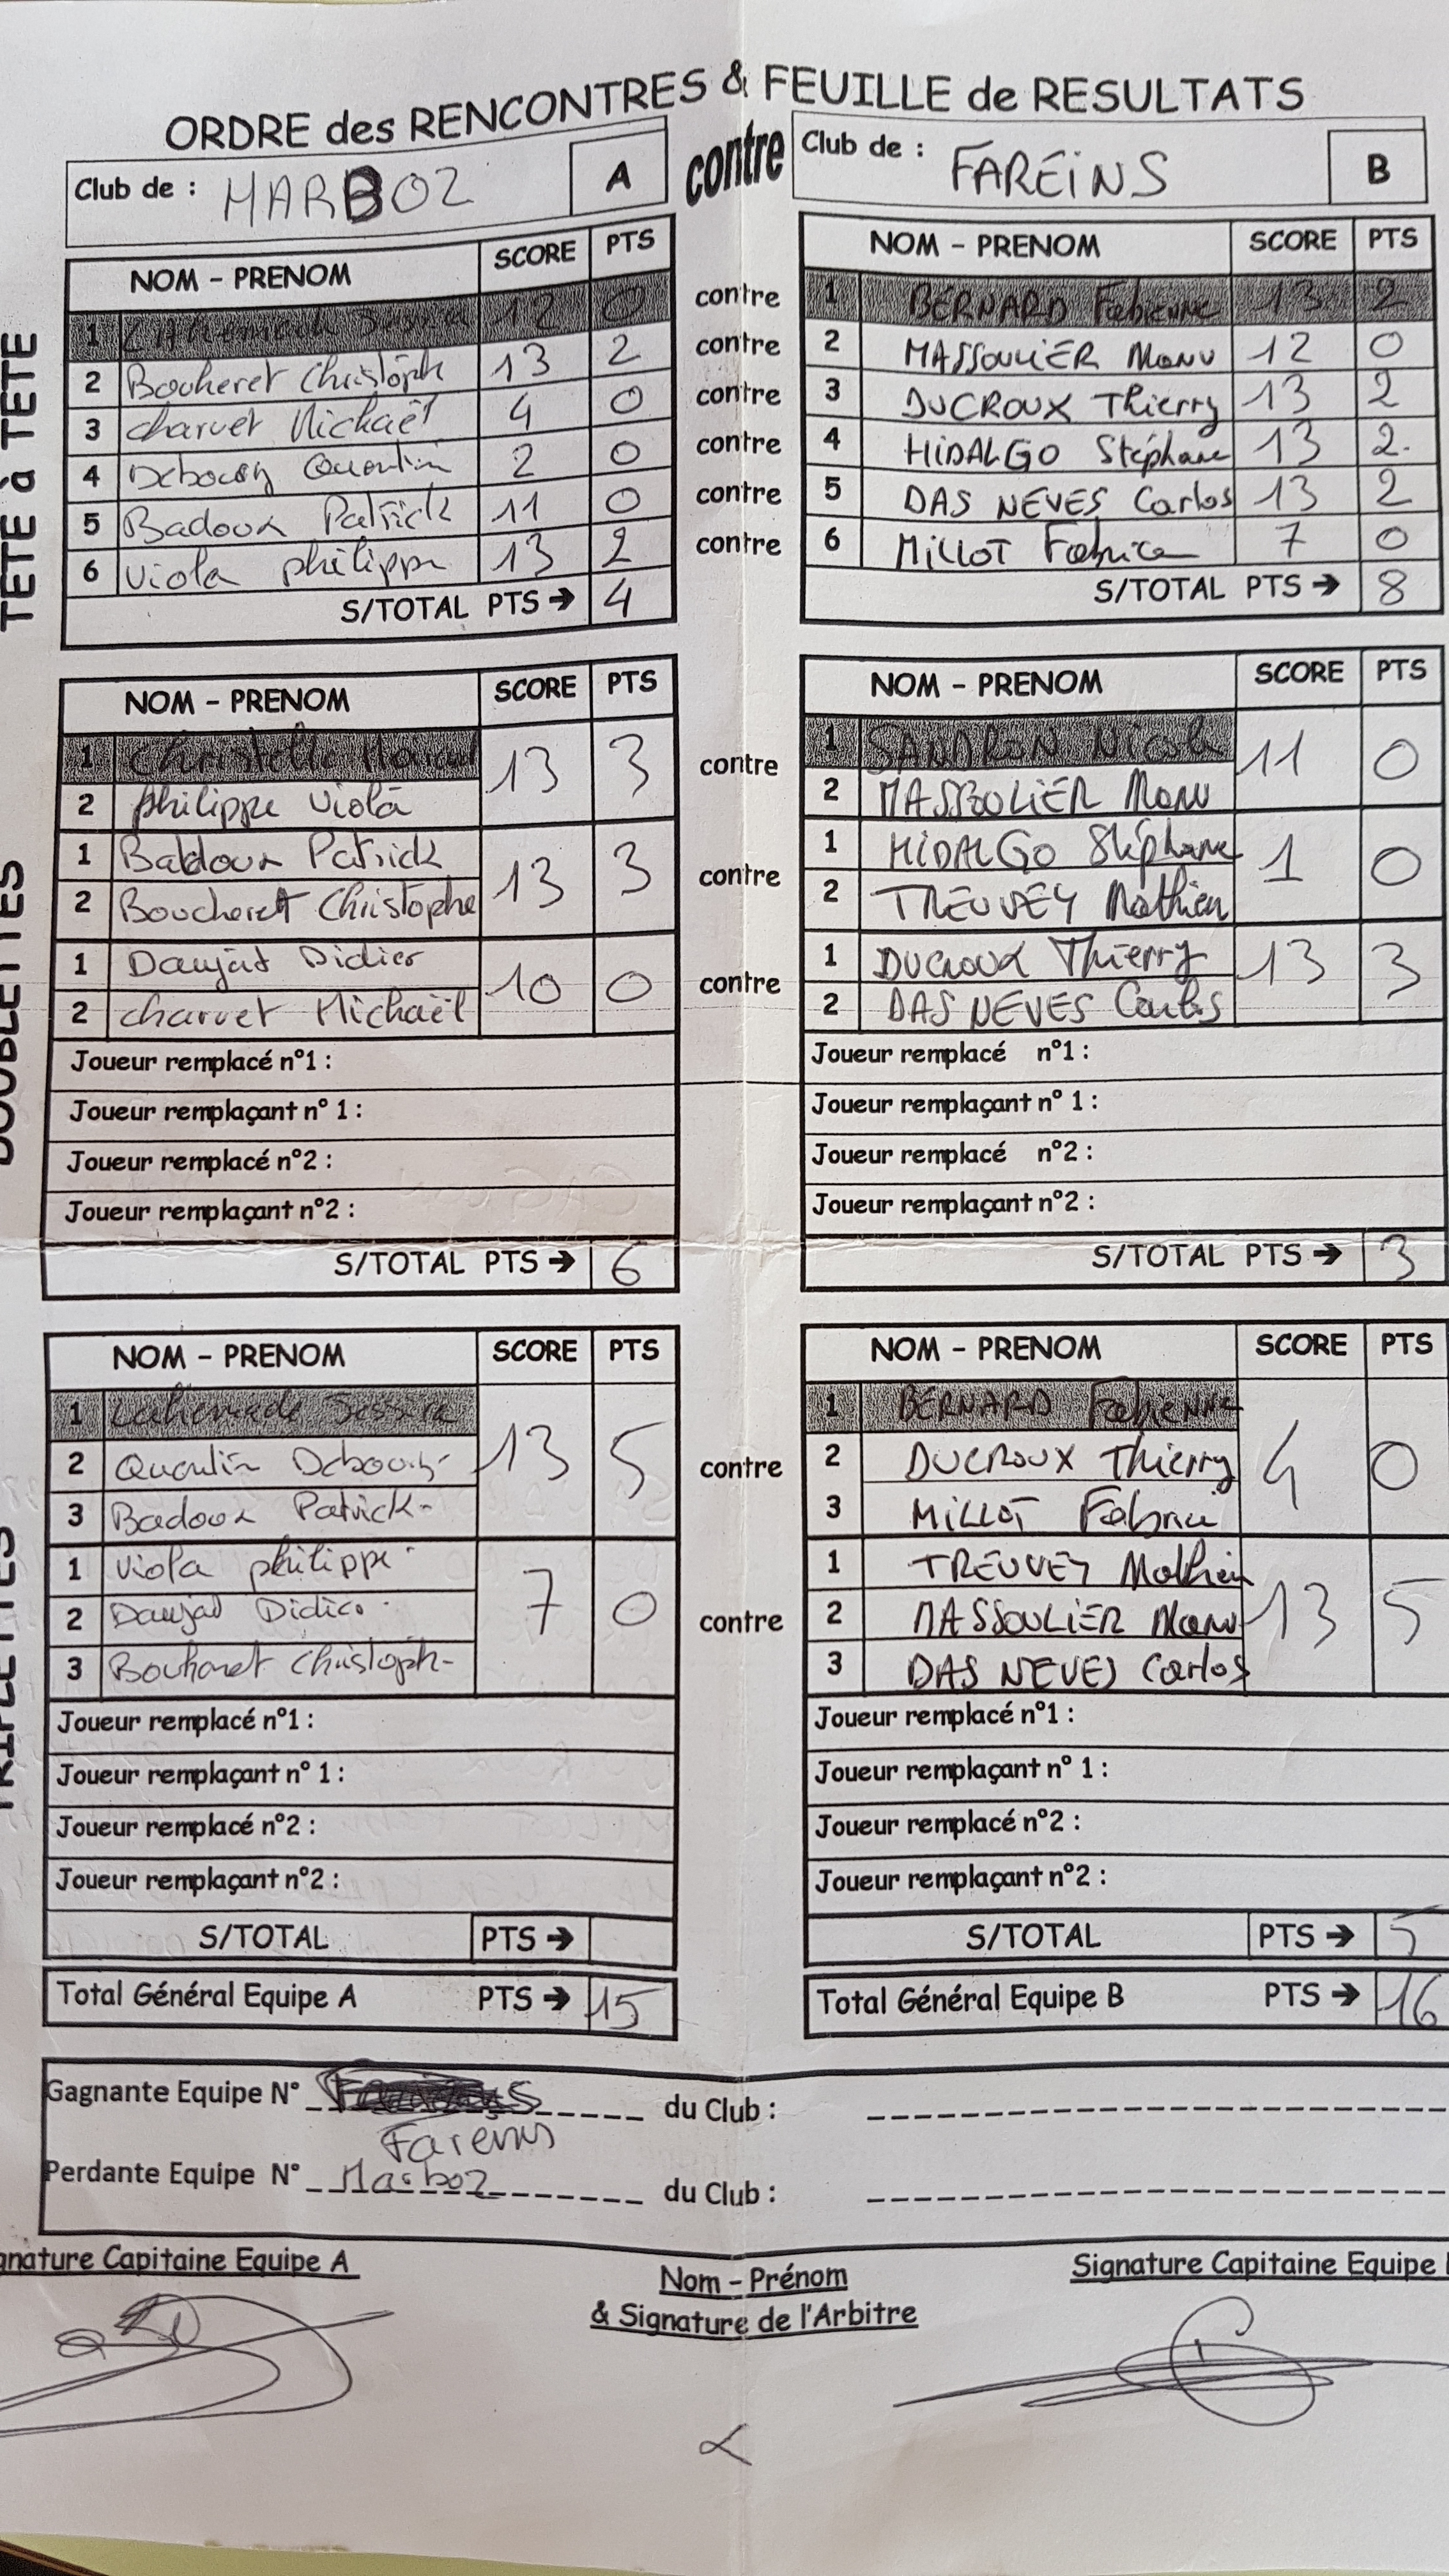 ORDRE des RENCONTRES & FEUILLE de RESULTATS
Club de : MARBOZ A contre Club de : FAREINS B
TETE à TETE
NOM - PRENOM SCORE PTS NOM - PRENOM SCORE PTS
1 12 0 contre 1 BERNARD Fabienne 13 2
2 Bocheret Christoph 13 2 contre 2 MASSOULIER Manu 12 0
3 charvet Michaël 4 0 contre 3 DUCROUX Thierry 13 2
4 Debourg Quentin 2 0 contre 4 HIDALGO Stéphane 13 2.
5 Badoux Patrick 11 0 contre 5 DAS NEVES Carlos 13 2
6 Viola philippe 13 2 contre 6 MILLOT Fabrice 7 0
S/TOTAL PTS → 4 S/TOTAL PTS → 8
DOUBLETTES
NOM - PRENOM SCORE PTS NOM - PRENOM SCORE PTS
1 Christelle 13 3 contre 1 SANDRON Nicole 11 0
2 philippe Viola 2 MASSOULIER Manu
1 Badoux Patrick 13 3 contre 1 HIDALGO Stéphane 1 0
2 Boucheret Christophe 2 TREUVEY Mathieu
1 Daujat Didier 10 0 contre 1 DUCROUX Thierry 13 3
2 charvet Michaël 2 DAS NEVES Carlos
Joueur remplacé n°1 : Joueur remplacé n°1 :
Joueur remplaçant n° 1 : Joueur remplaçant n° 1 :
Joueur remplacé n°2 : Joueur remplacé n°2 :
Joueur remplaçant n°2 : Joueur remplaçant n°2 :
S/TOTAL PTS → 6 S/TOTAL PTS → 3
TRIPLETTES
NOM - PRENOM SCORE PTS NOM - PRENOM SCORE PTS
1 13 5 contre 1 BERNARD Fabienne 4 0
2 Quentin Debourg 2 DUCROUX Thierry
3 Badoux Patrick 3 MILLOT Fabrice
1 Viola philippe 7 0 contre 1 TREUVEY Mathieu 13 5
2 Daujat Didier 2 MASSOULIER Manu
3 Bouheret Christoph 3 DAS NEVES Carlos
Joueur remplacé n°1 : Joueur remplacé n°1 :
Joueur remplaçant n° 1 : Joueur remplaçant n° 1 :
Joueur remplacé n°2 : Joueur remplacé n°2 :
Joueur remplaçant n°2 : Joueur remplaçant n°2 :
S/TOTAL PTS → S/TOTAL PTS → 5
Total Général Equipe A PTS → 15 Total Général Equipe B PTS → 16
Gagnante Equipe N° du Club :
Fareins
Perdante Equipe N° Marboz du Club :
gnature Capitaine Equipe A Nom - Prénom Signature Capitaine Equipe
& Signature de l'Arbitre